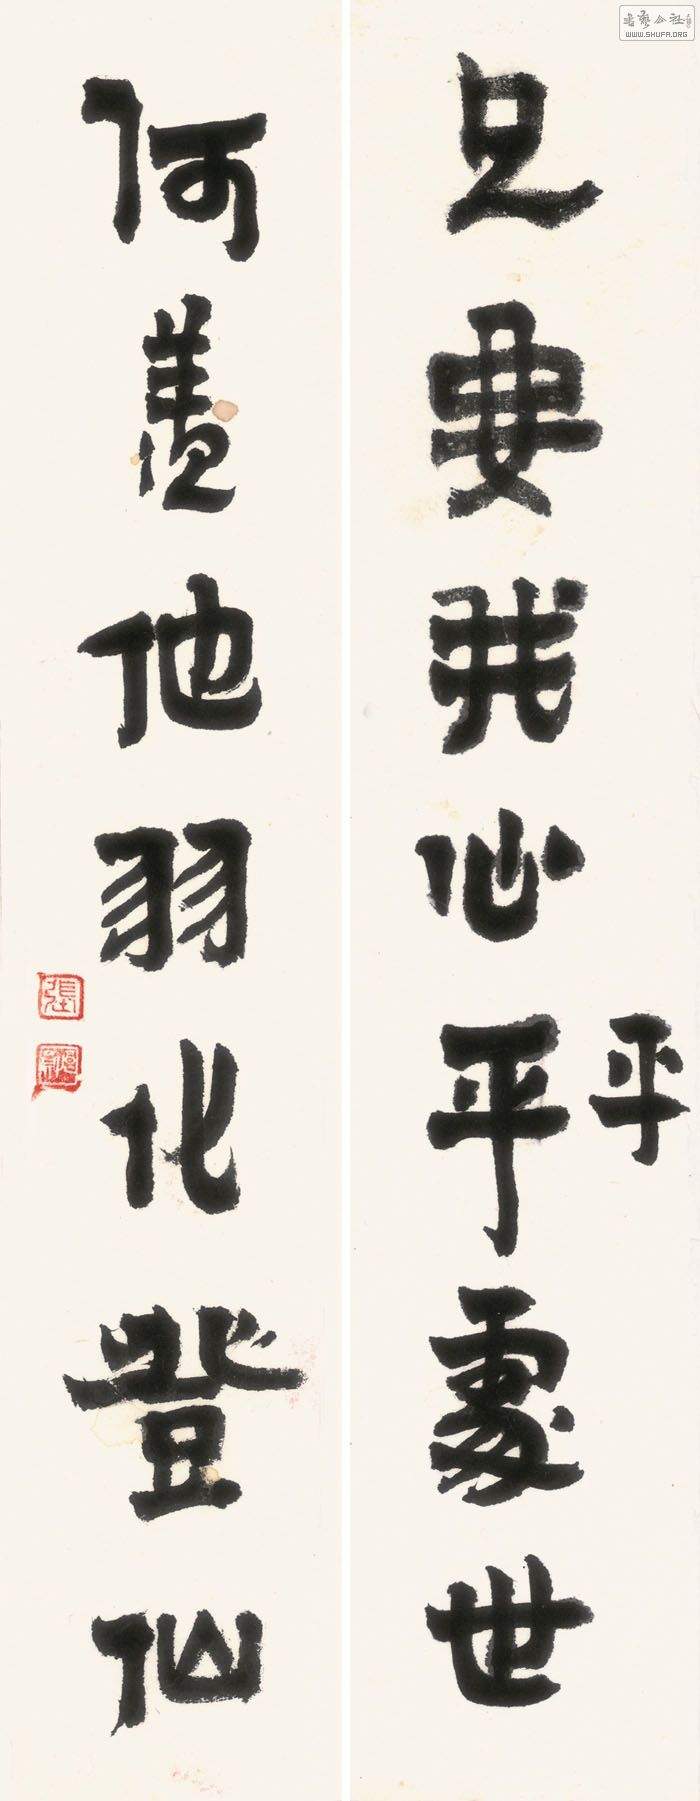 只要我心平處世
平
何羨他羽化登仙
張
書艺公社
WWW.SHUFA.ORG